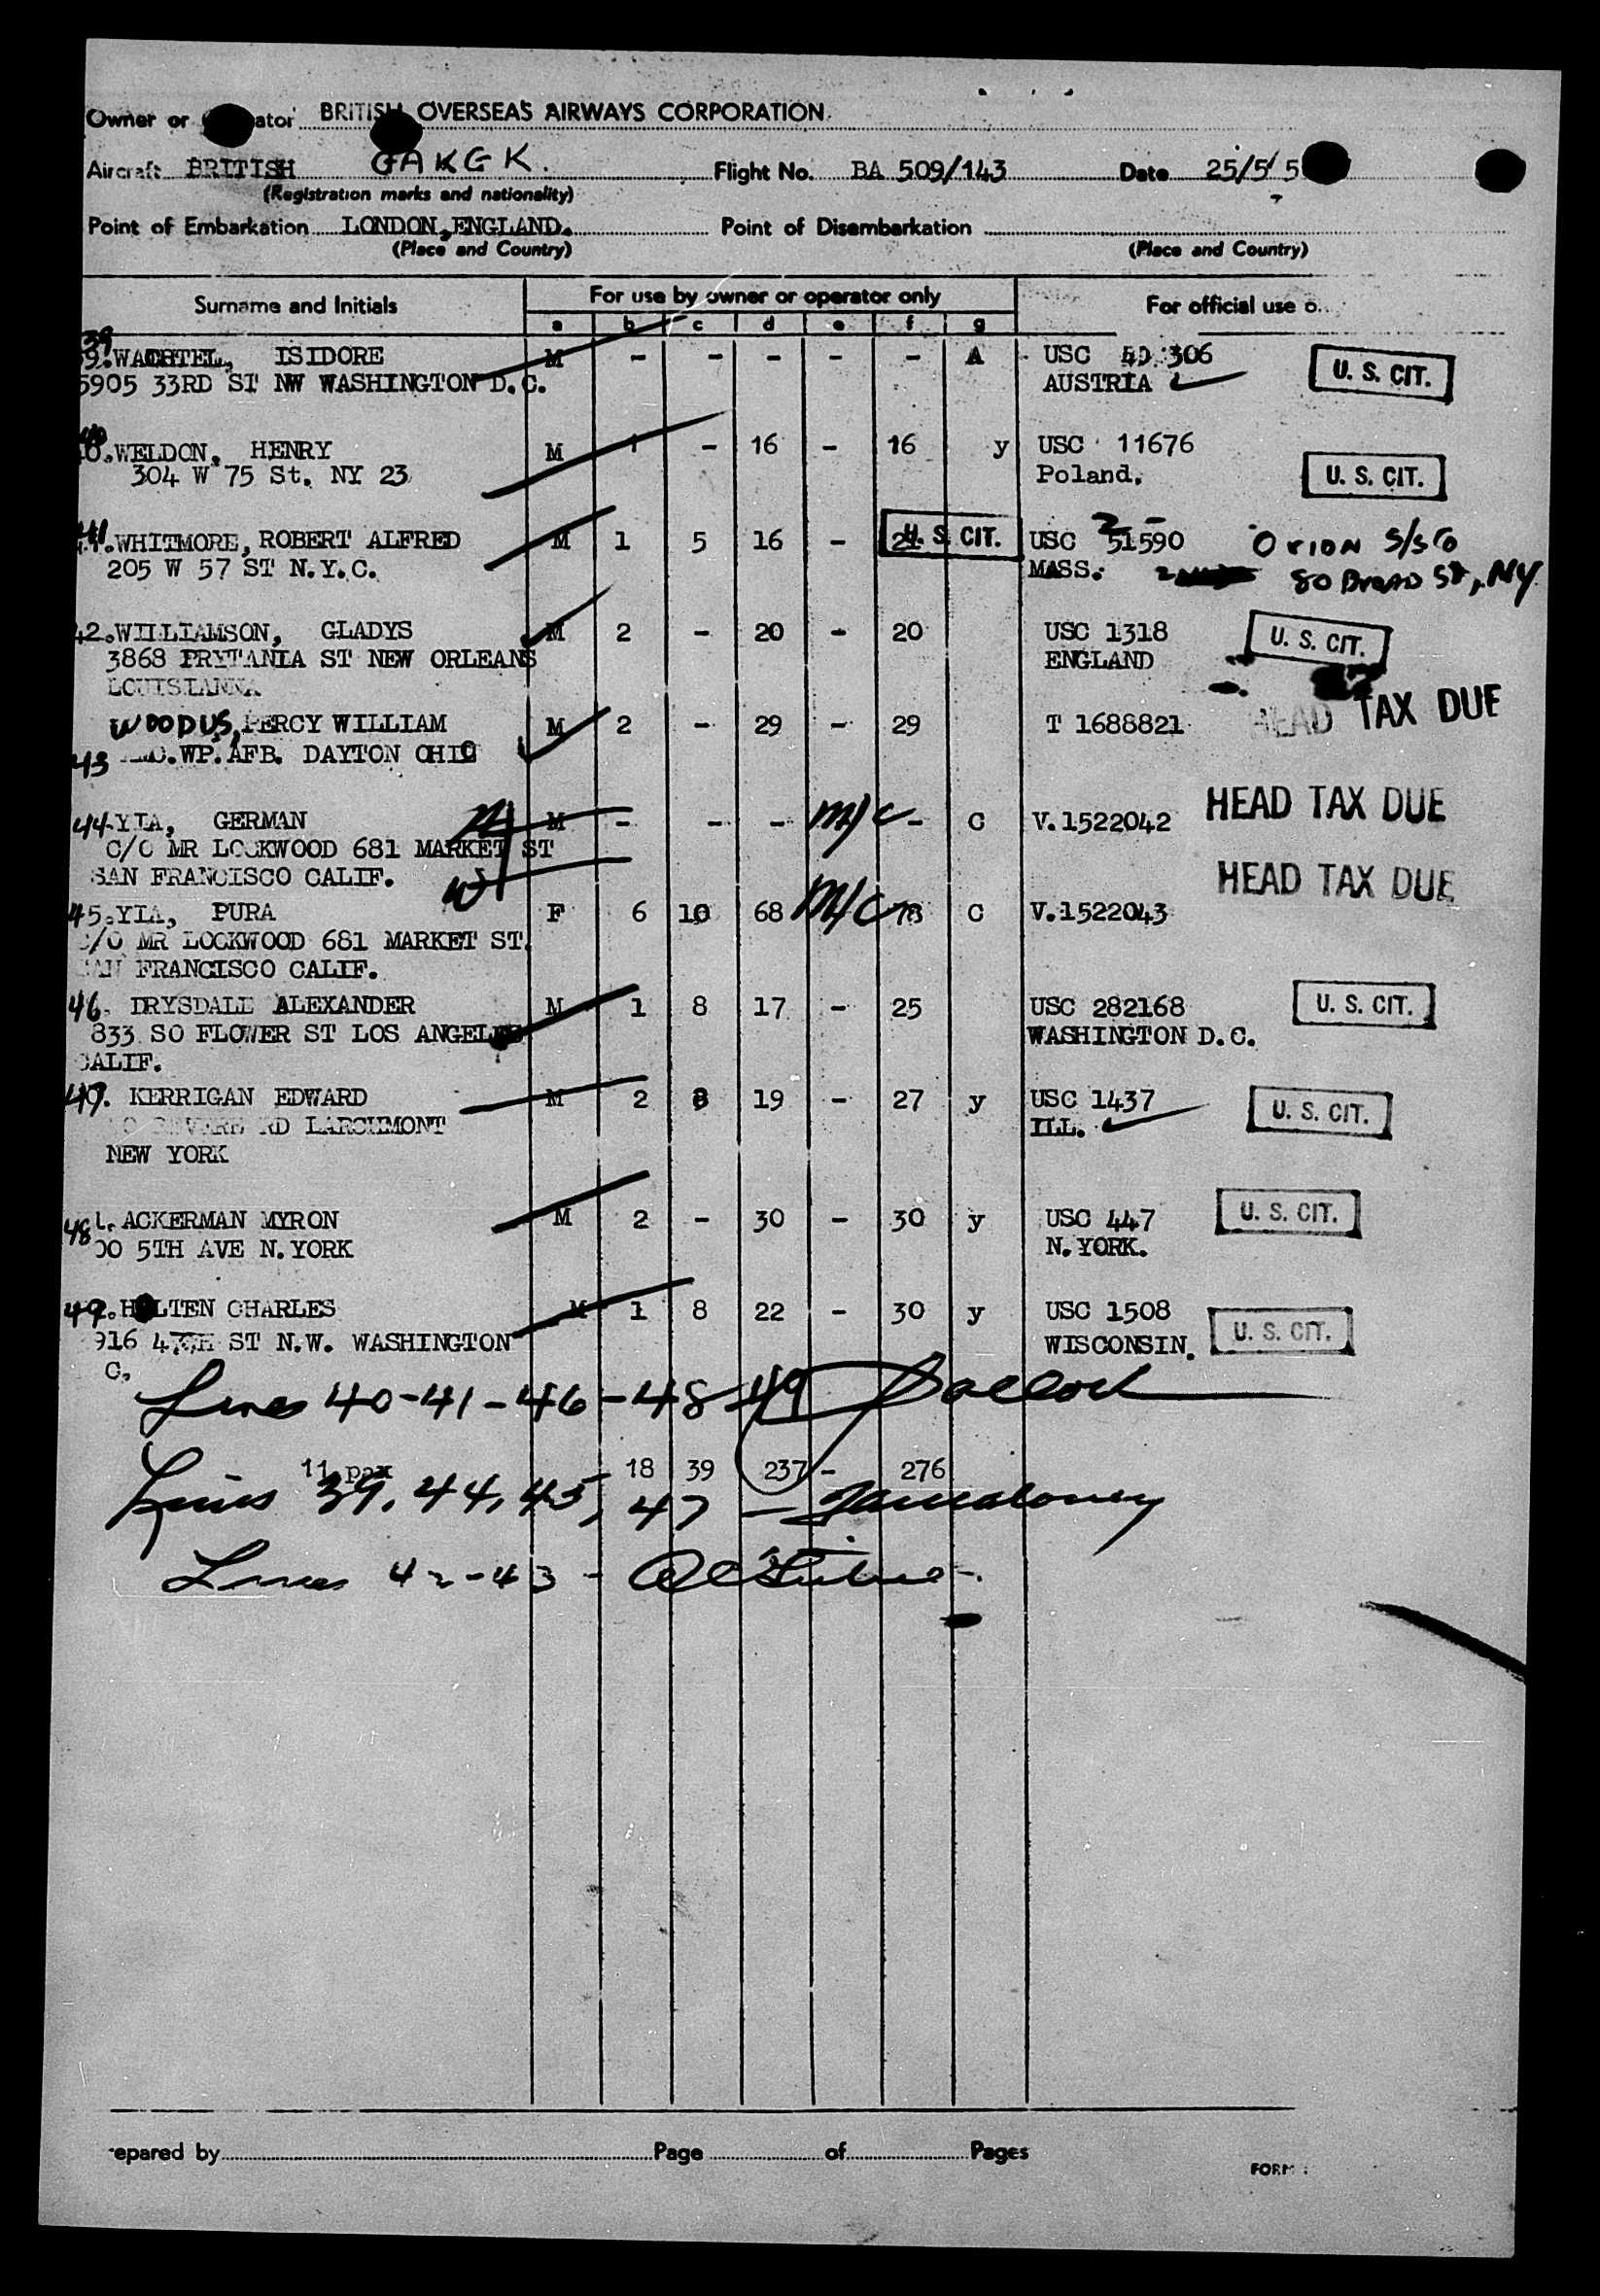 Owner or ator BRITISH OVERSEAS AIRWAYS CORPORATION.
Aircraft BRITISH GAKGK. Flight No. BA 509/143 Date 25/5/5
(Registration marks and nationality)
Point of Embarkation LONDON, ENGLAND. Point of Disembarkation
(Place and Country) (Place and Country)
Surname and Initials For use by owner or operator only For official use o
a b c d e f g
39
9. WACHTEL, ISIDORE M - - - - - A USC 306 U. S. CIT.
5905 33RD ST NW WASHINGTON D.C. AUSTRIA
40
0. WELDON, HENRY M 1 - 16 - 16 y USC 11676
304 W 75 St. NY 23 Poland. U. S. CIT.
41. WHITMORE, ROBERT ALFRED M 1 5 16 - 21 U. S. CIT. USC 51590 Orion S/S Co
205 W 57 ST N.Y.C. MASS. 80 Broad St, NY
42. WILLIAMSON, GLADYS M 2 - 20 - 20 USC 1318 U. S. CIT.
3868 PRYTANIA ST NEW ORLEANS ENGLAND
LOUISIANNA
WOODUS, PERCY WILLIAM M 2 - 29 - 29 T 1688821 HEAD TAX DUE
43 WP. AFB. DAYTON OHIO
44. YIA, GERMAN M - - - M/C - C V.1522042 HEAD TAX DUE
C/O MR LOCKWOOD 681 MARKET ST
SAN FRANCISCO CALIF. HEAD TAX DUE
45. YIA, PURA F 6 10 68 M/C 78 C V.1522043
C/O MR LOCKWOOD 681 MARKET ST.
SAN FRANCISCO CALIF.
46. DRYSDALE ALEXANDER M 1 8 17 - 25 USC 282168 U. S. CIT.
833 SO FLOWER ST LOS ANGELES WASHINGTON D.C.
CALIF.
47. KERRIGAN EDWARD M 2 8 19 - 27 y USC 1437 U. S. CIT.
RD LARCHMONT ILL.
NEW YORK
48 ACKERMAN MYRON M 2 - 30 - 30 y USC 447 U. S. CIT.
00 5TH AVE N.YORK N.YORK.
49. HOLTEN CHARLES M 1 8 22 - 30 y USC 1508
916 ST N.W. WASHINGTON WISCONSIN. U. S. CIT.
C.
Lines 40-41-46-48-49
11 pax 18 39 237 - 276
Lines 39, 44, 45, 47 -
Lines 42-43 -
epared by Page of Pages
FORM